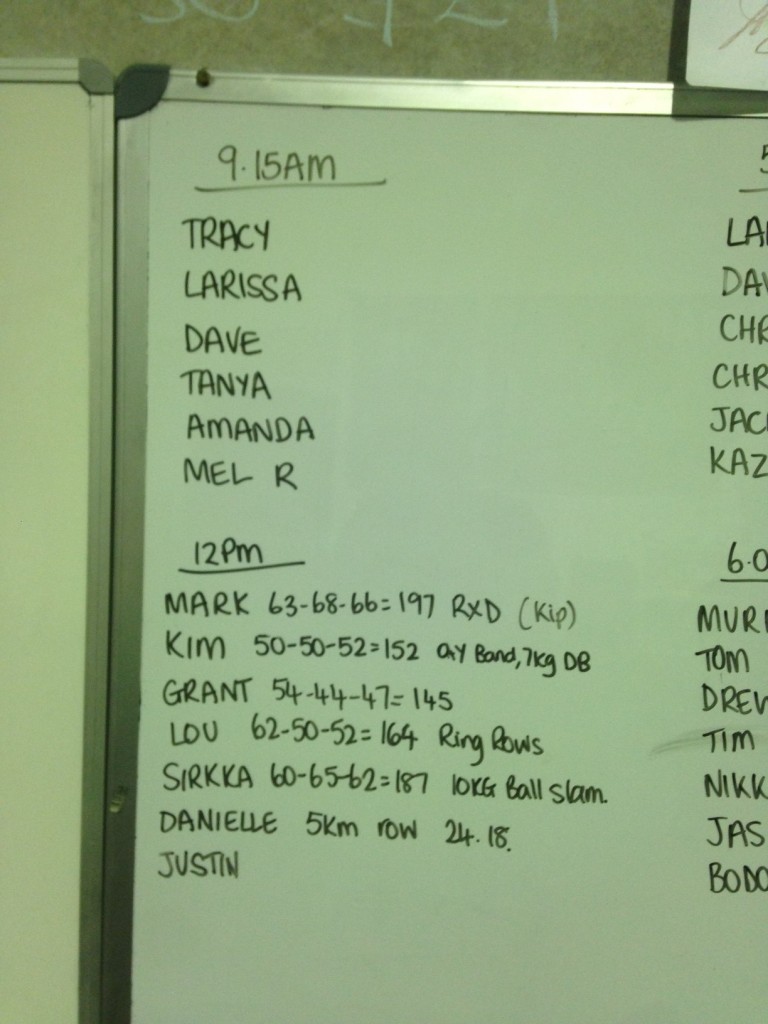 9.15AM
TRACY
LARISSA
DAVE
TANYA
AMANDA
MEL R
12Pm
MARK 63-68-66=197 RXD (Kip)
KIM 50-50-52=152 Band, 7kg DB
GRANT 54-44-47=145
LOU 62-50-52=164 Ring Rows
SIRKKA 60-65-62=187 10KG Ball Slam.
DANIELLE 5Km row 24.18.
JUSTIN
5
LA
DAV
CHR
CHR
JAC
KAZ
6.0
MUR
TOM
DREW
TIM
NIKK
JAS
BODO